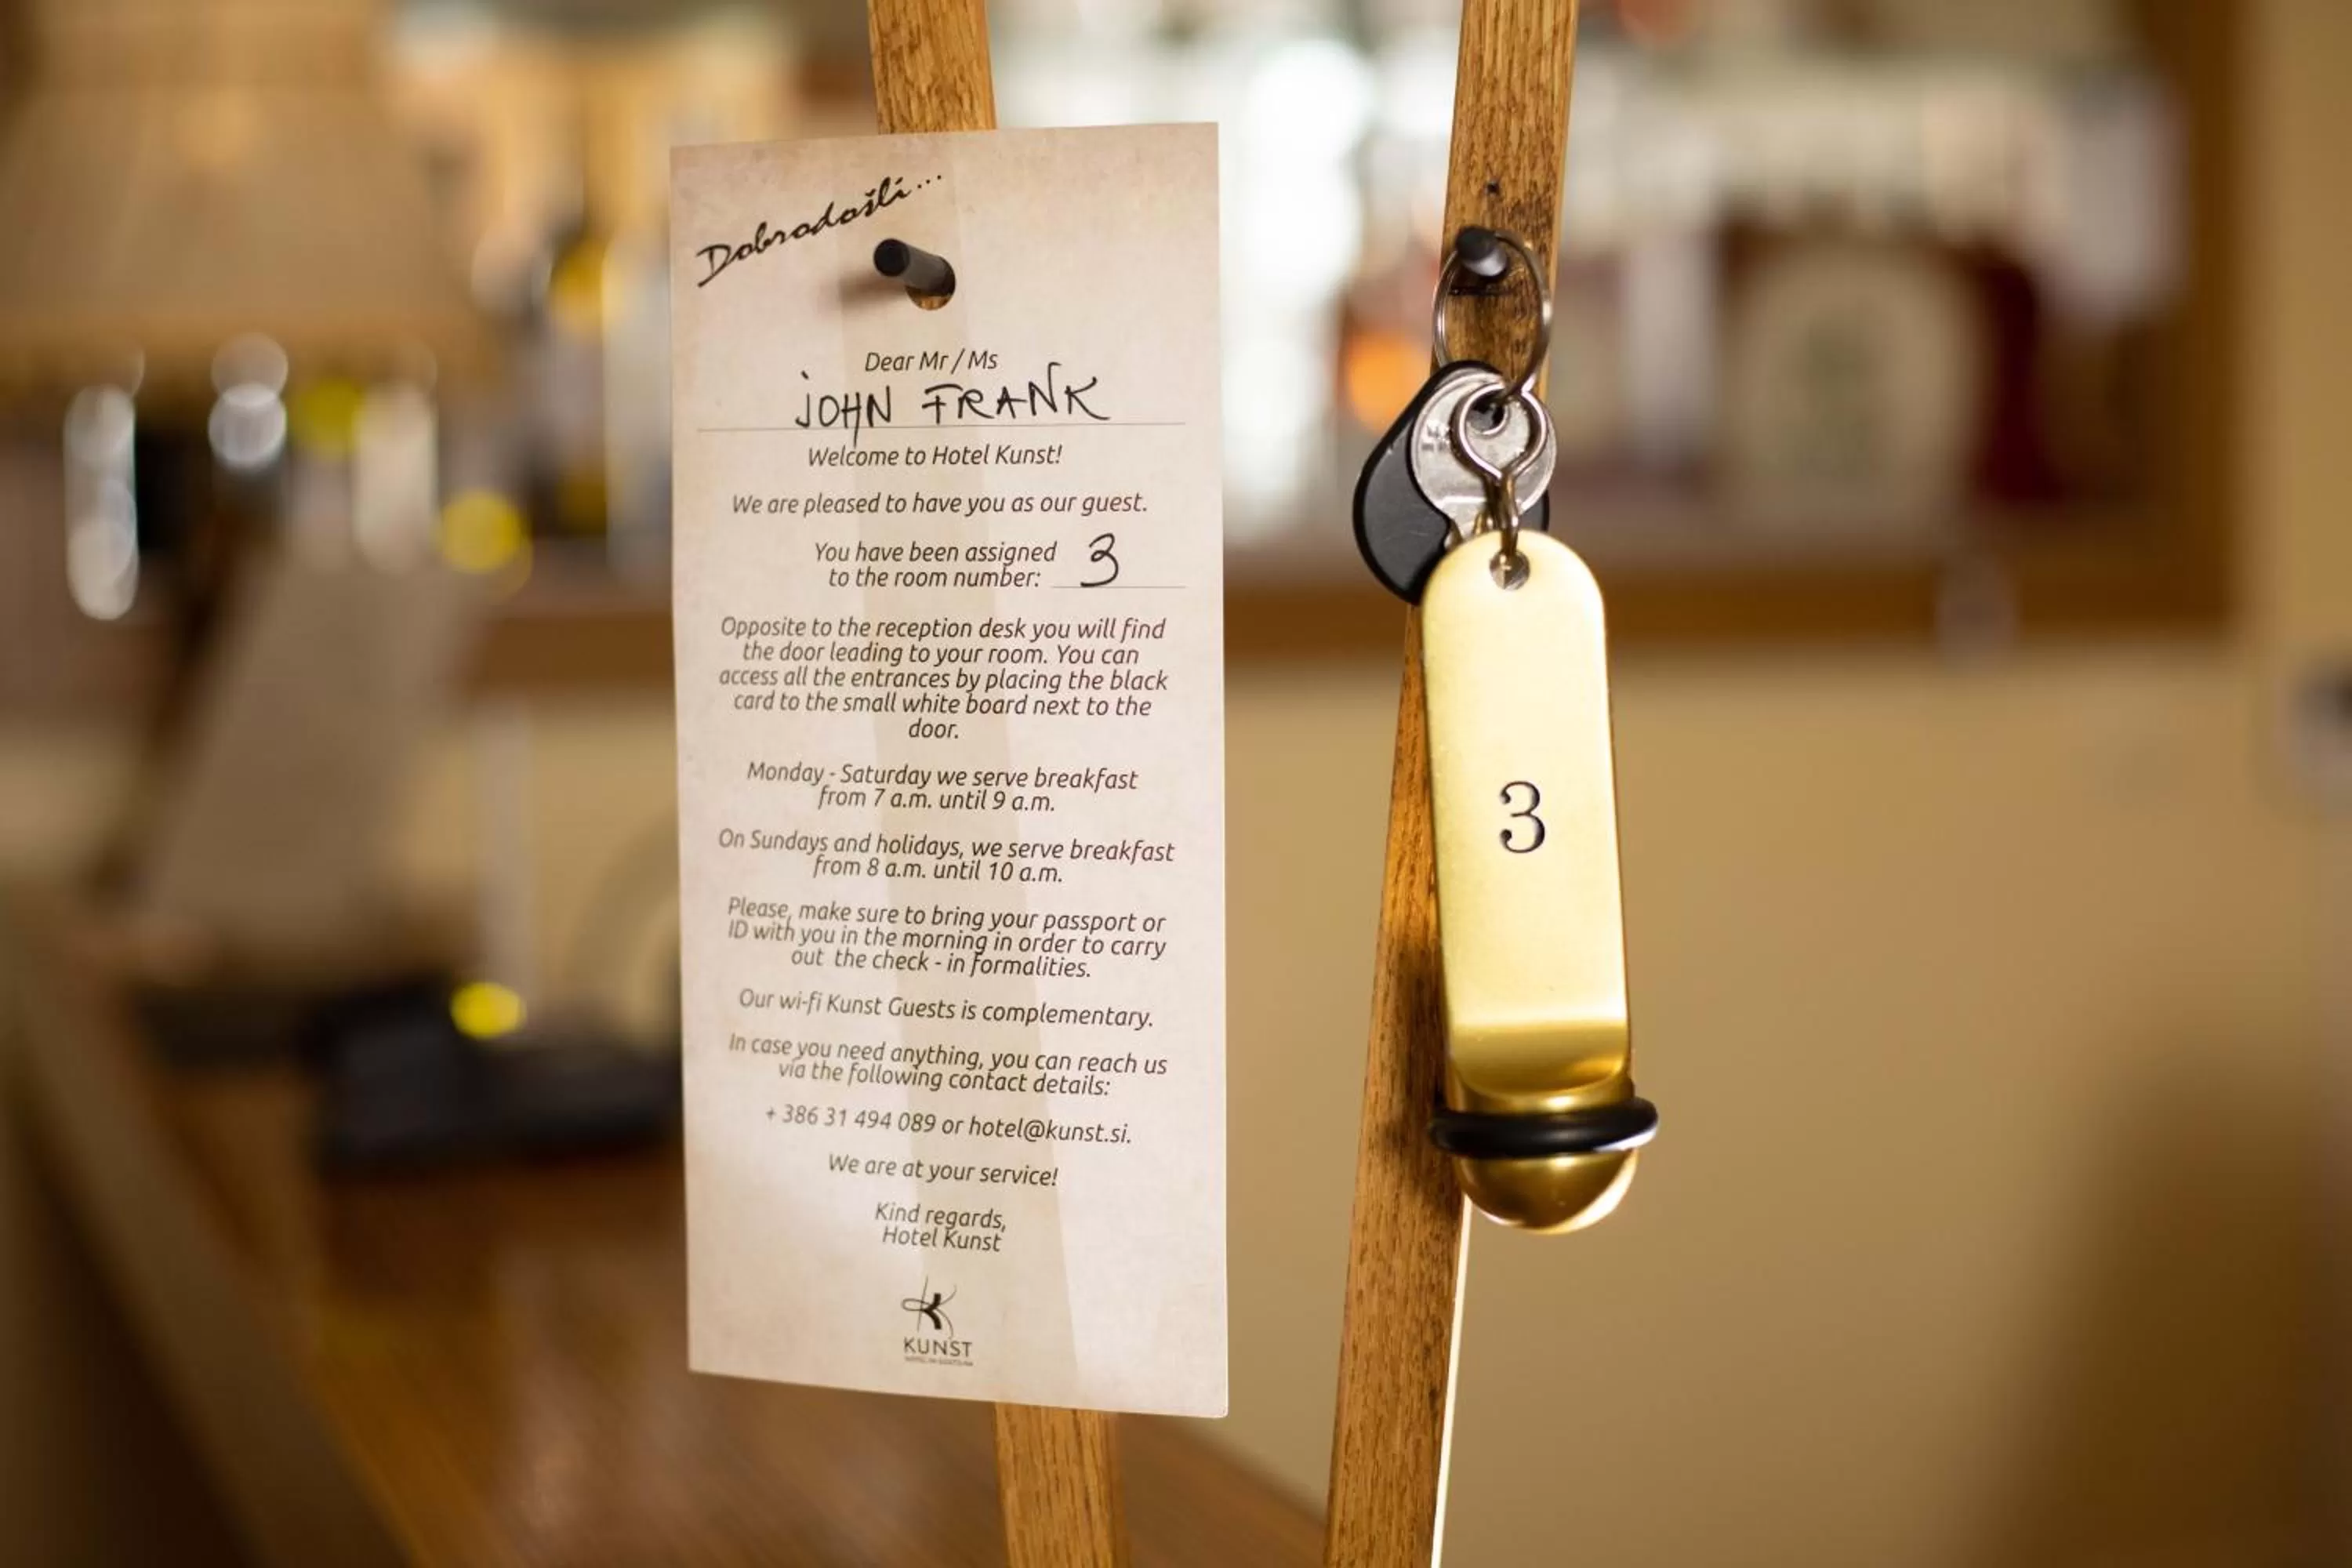 Dobrodošli...
Dear Mr / Ms
JOHN FRANK
Welcome to Hotel Kunst!
We are pleased to have you as our guest.
You have been assigned
to the room number: 3
Opposite to the reception desk you will find
the door leading to your room. You can
access all the entrances by placing the black
card to the small white board next to the
door.
Monday - Saturday we serve breakfast
from 7 a.m. until 9 a.m.
On Sundays and holidays, we serve breakfast
from 8 a.m. until 10 a.m.
Please, make sure to bring your passport or
ID with you in the morning in order to carry
out the check - in formalities.
Our wi-fi Kunst Guests is complementary.
In case you need anything, you can reach us
via the following contact details:
+ 386 31 494 089 or hotel@kunst.si.
We are at your service!
Kind regards,
Hotel Kunst
KUNST
3